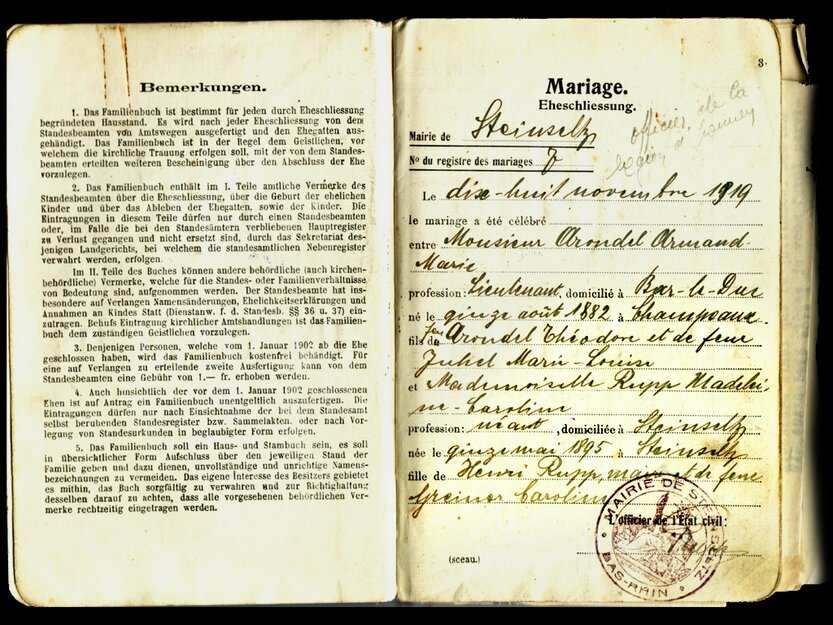 Bemerkungen.
1. Das Familienbuch ist bestimmt für jeden durch Eheschliessung
begründeten Hausstand. Es wird nach jeder Eheschliessung von dem
Standesbeamten von Amtswegen ausgefertigt und den Ehegatten aus-
gehändigt. Das Familienbuch ist in der Regel dem Geistlichen, vor
welchem die kirchliche Trauung erfolgen soll, mit der von dem Standes-
beamten erteilten weiteren Bescheinigung über den Abschluss der Ehe
vorzulegen.
2. Das Familienbuch enthält im I. Teile amtliche Vermerke des
Standesbeamten über die Eheschliessung, über die Geburt der ehelichen
Kinder und über das Ableben der Ehegatten, sowie der Kinder. Die
Eintragungen in diesem Teile dürfen nur durch einen Standesbeamten
oder, im Falle die bei den Standesämtern verbliebenen Hauptregister
zu Verlust gegangen und nicht ersetzt sind, durch das Sekretariat des-
jenigen Landgerichts, bei welchem die standesamtlichen Nebenregister
verwahrt werden, erfolgen.
Im II. Teile des Buches können andere behördliche (auch kirchen-
behördliche) Vermerke, welche für die Standes- oder Familienverhältnisse
von Bedeutung sind, aufgenommen werden. Der Standesbeamte hat ins-
besondere auf Verlangen Namensänderungen, Ehelichkeitserklärungen und
Annahmen an Kindes Statt (Dienstanw. f. d. Standesb. §§ 36 u. 37) ein-
zutragen. Behufs Eintragung kirchlicher Amtshandlungen ist das Familien-
buch dem zuständigen Geistlichen vorzulegen.
3. Denjenigen Personen, welche vom 1. Januar 1902 ab die Ehe
geschlossen haben, wird das Familienbuch kostenfrei behändigt. Für
eine auf Verlangen zu erteilende zweite Ausfertigung kann von dem
Standesbeamten eine Gebühr von 1.— fr. erhoben werden.
4. Auch hinsichtlich der vor dem 1. Januar 1902 geschlossenen
Ehen ist auf Antrag ein Familienbuch unentgeltlich auszufertigen. Die
Eintragungen dürfen nur nach Einsichtnahme der bei dem Standesamt
selbst beruhenden Standesregister bzw. Sammelakten, oder nach Vor-
legung von Standesurkunden in beglaubigter Form erfolgen.
5. Das Familienbuch soll ein Haus- und Stambuch sein, es soll
in übersichtlicher Form Aufschluss über den jeweiligen Stand der
Familie geben und dazu dienen, unvollständige und unrichtige Namens-
bezeichnungen zu vermeiden. Das eigene Interesse des Besitzers gebietet
es mithin, das Buch sorgfältig zu verwahren und zur Richtighaltung
desselben darauf zu achten, dass alle vorgesehenen behördlichen Ver-
merke rechtzeitig eingetragen werden.
3.
Mariage.
Eheschliessung.
officier de la
Mairie de Steinseltz
No du registre des mariages 7
Le dix-huit novembre 1919
le mariage a été célébré
entre Monsieur Arondel Armand-
Marie
profession: Lieutenant, domicilié à Bar-le-Duc
né le quinze août 1882 à Champeaux
fils de feu Arondel Théodore et de feue
Juhel Marie-Louise
et Mademoiselle Rupp Madelei-
ne-Caroline
profession: néant, domiciliée à Steinseltz
née le quinze mai 1895 à Steinseltz
fille de Henri Rupp, maire et de feue
Greiner Caroline
L'officier de l'État civil:
(sceau.)
MAIRIE DE STEINSELTZ
BAS-RHIN